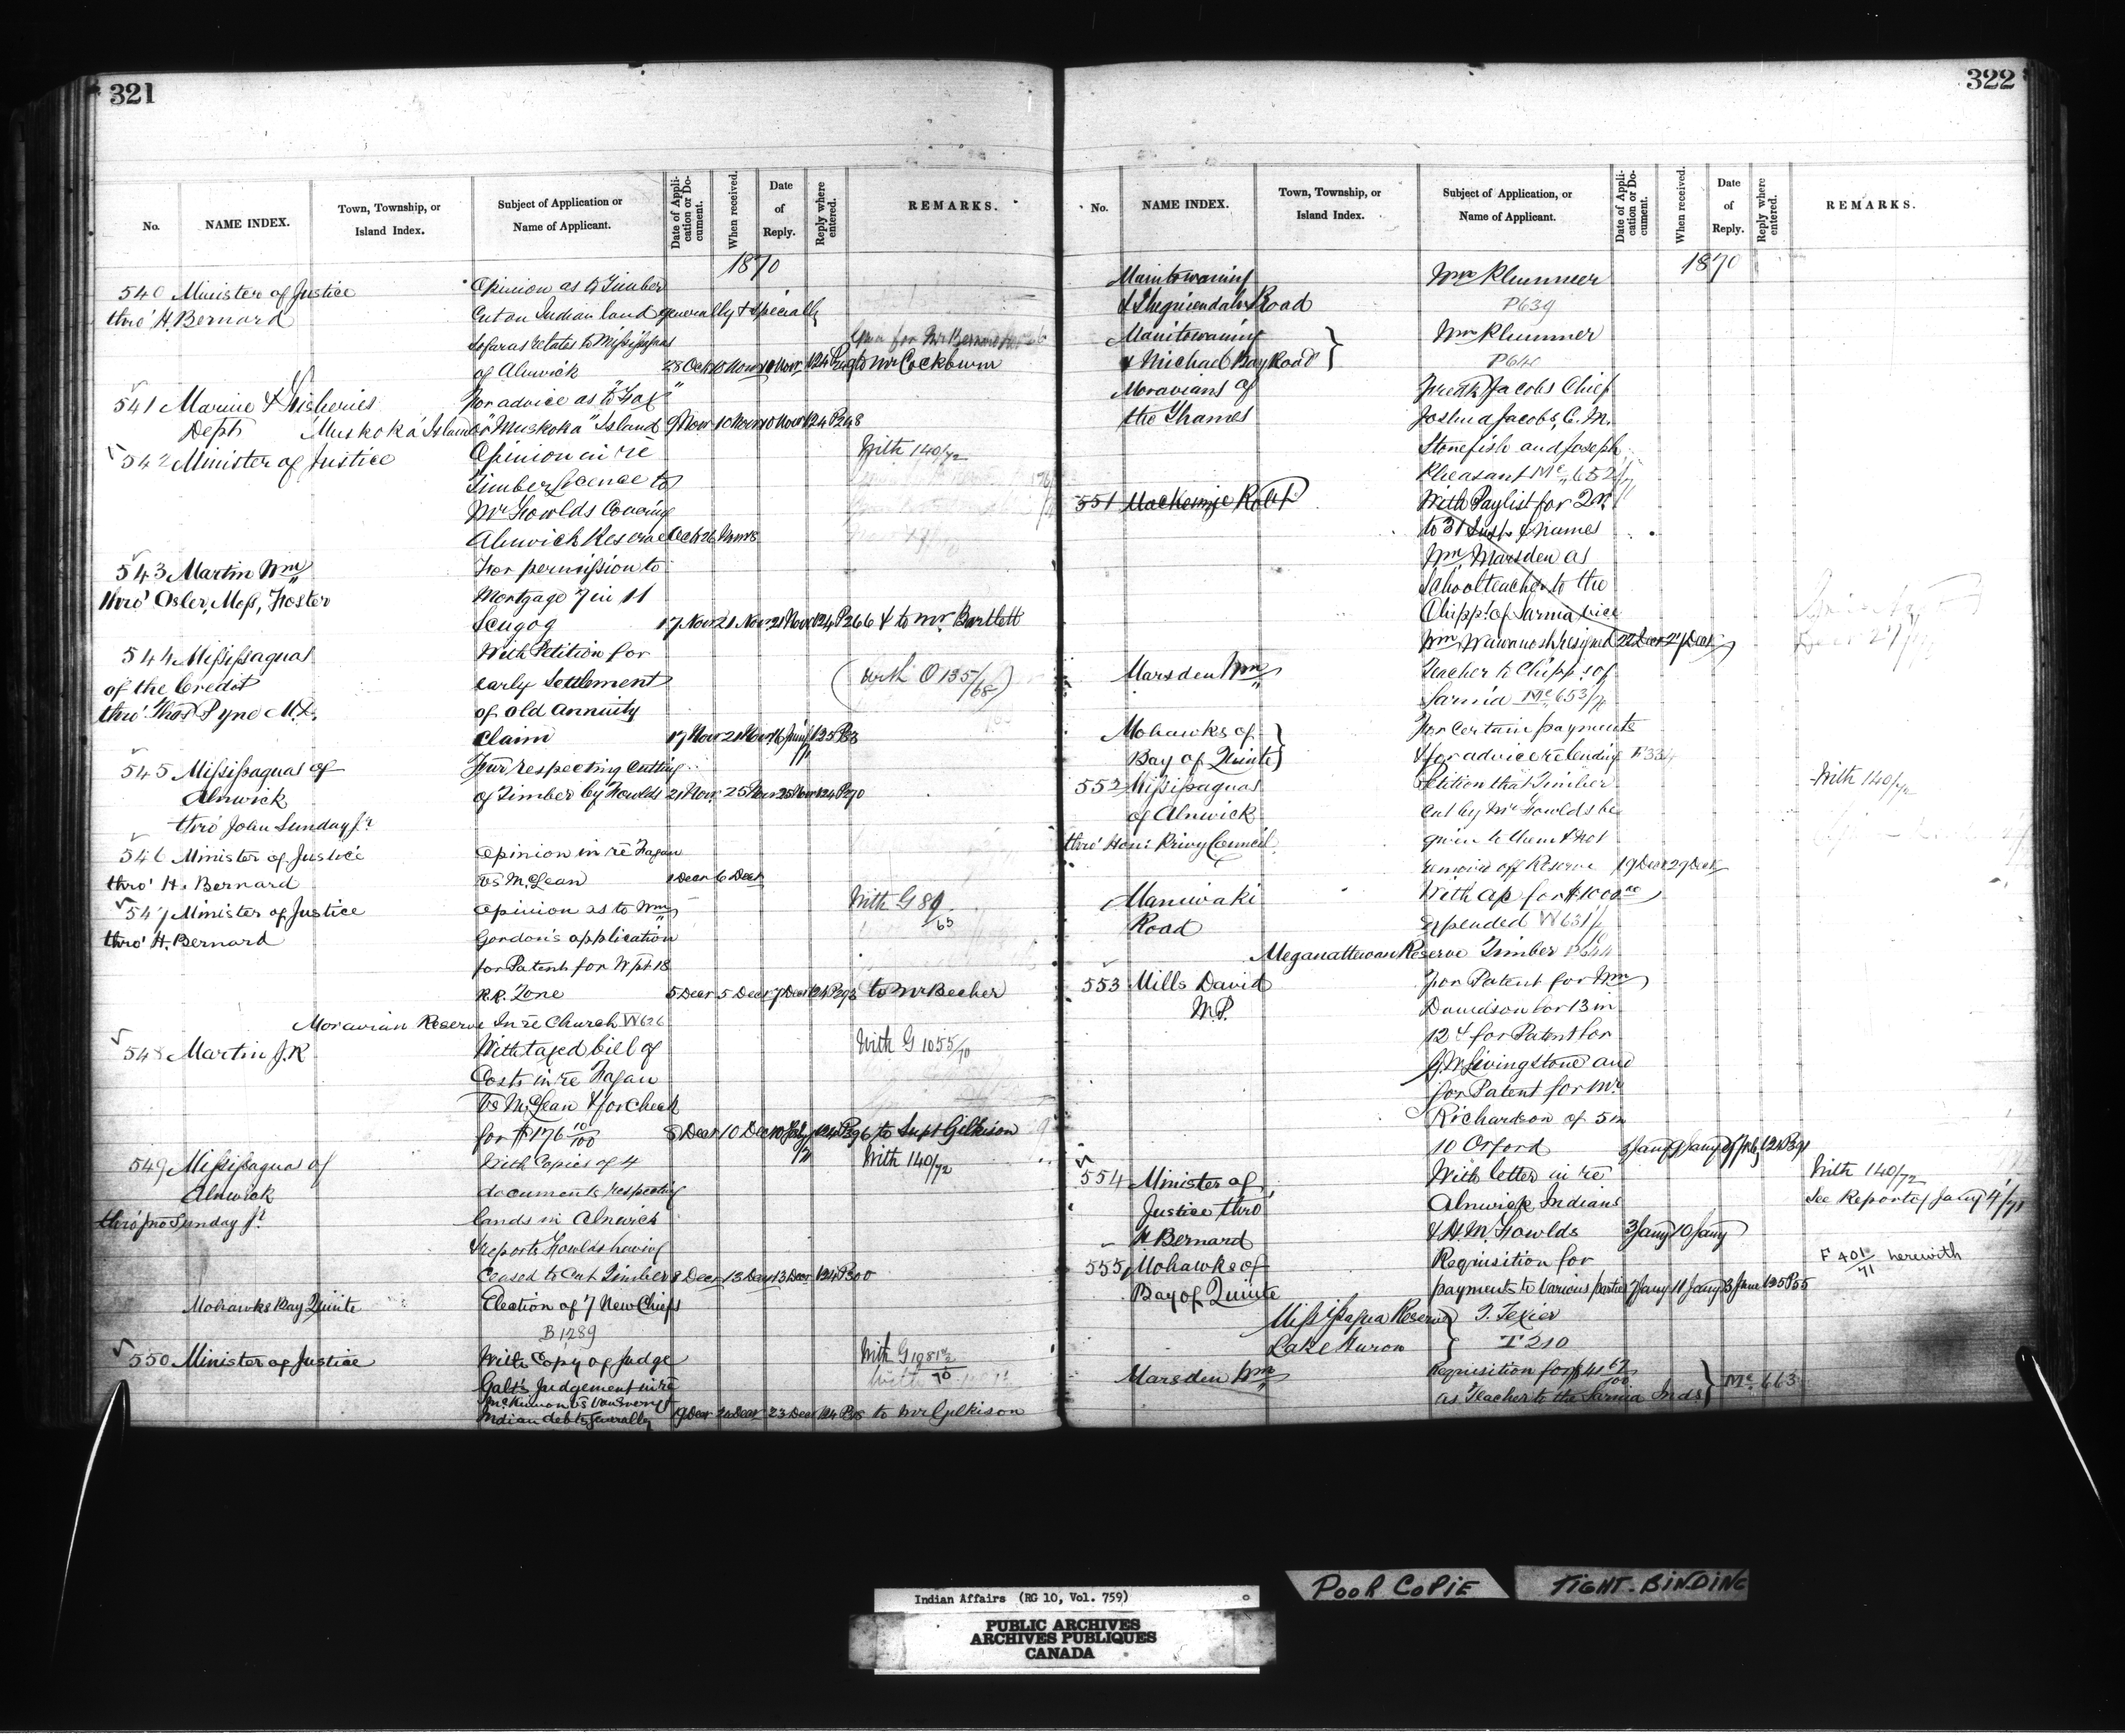 321
No.
NAME INDEX.
Town, Township, or
Island Index.
Subject of Application or
Name of Applicant.
Date of Appli-
cation or Do-
cument.
When received.
Date
of
Reply.
Reply where
entered.
REMARKS.
1870
540 Minister of Justice Opinion as to Timber
thro' H. Bernard Cut on Indian land generally & specially
so far as relates to Missisaguas
of Alnwick 28 Oct 10 Nov 10 Nov 124 P to Mr Cockburn
541 Marine & Fisheries For advice as to "Fox"
Dept Muskoka Island or "Muskoka" Island 9 Nov 10 Nov 10 Nov 124 P248
542 Minister of Justice Opinion in re With 140/72
Timber Licence to
Mr Fowlds Covering
Alnwick Reserve Oct 26 Nov 18
543 Martin Wm For permission to
thro' Osler, Moss, Foster Mortgage 7 in 11
Scugog 17 Nov 21 Nov 21 Nov 124 P266 & to Mr. Bartlett
544 Missisaguas With Petition for
of the Credit early Settlement (with O 135/68)
thro' Thos Pyne M.D. of old annuity
Claim 17 Nov 21 Nov 16 Jany/71 125 P33
545 Missisaguas of Fur respecting Cutting
Alnwick of Timber by Fowlds 21 Nov 25 Nov 25 Nov 124 P270
thro' John Sunday Jr
546 Minister of Justice Opinion in re Fagan
thro' H. Bernard vs McLean 1 Decr 6 Decr
547 Minister of Justice Opinion as to Wm With G 89/65
thro' H. Bernard Gordon's application
for Patent for W pt 18
R.R. Zone 5 Decr 5 Decr 7 Decr 124 P293 to Mr Becher
Moravian Reserve In re Church W626
548 Martin J.R With taxed bill of With G 1055/70
Costs in re Fagan
vs McLean & for check
for $176 10/100 8 Decr 10 Decr 10 Feby/71 124 P396 to Supt Gilkison
549 Missisaguas of With Copies of 4 With 140/72
Alnwick documents respecting
thro' Jno Sunday Jr lands in Alnwick
& reports Fowlds having
ceased to cut Timber 8 Decr 13 Decr 13 Decr 124 P300
Mohawks Bay Quinte Election of 7 New Chiefs
B 1289
550 Minister of Justice With Copy of Judge With G 1081 1/2/70
Galt's Judgement in re
McKinnon vs Van Every
Indian debts generally 19 Decr 20 Decr 23 Decr 124 P318 to Mr Gilkison
322
No.
NAME INDEX.
Town, Township, or
Island Index.
Subject of Application, or
Name of Applicant.
Date of Appli-
cation or Do-
cument.
When received.
Date
of
Reply.
Reply where
entered.
REMARKS.
1870
Manitowaning Wm Plummer
& Sheguiendah Road P639
Manitowaning Wm Plummer
& Michael Bay Road P641
Moravians of Fredk Jacobs Chief
the Thames Joshua Jacobs, C. M.
Stonefish and Joseph
Pheasant Mc 652/71
551 Mackenzie Robt With Paylist for Qr
to 31 Inst & names
Wm Marsden as
School teacher to the
Chipp. of Sarnia vice
Wm Wawanosh resigned 22 Decr 27 Decr
Marsden Wm Teacher to Chipps of
Sarnia Mc 653/71
Mohawks of For certain payments
Bay of Quinte & for advice re lending F334
552 Missisaguas Petition that Timber With 140/72
of Alnwick cut by Mr Fowlds be
thro' Hon: Privy Council given to them & not
removed off Reserve 19 Decr 29 Decr
Maniwaki With a/c for $1000.00
Road Expended W631/
Meganattewan Reserve Timber P644
553 Mills David For Patent for Wm
M.P. Davidson for 13 in
12 & for Patent for
G.W. Livingstone and
for Patent for Mr
Richardson of 5 in
10 Orford 3 Jany 9 Jany 9 Feby 124 P391
554 Minister of With letter in re With 140/72
Justice thro Alnwick Indians See Report of Jany 4/71
H Bernard & H.M. Fowlds 3 Jany 10 Jany
555 Mohawks of Requisition for F 401/71 herewith
Bay of Quinte payments to various parties 7 Jany 11 Jany 3 June 125 P55
Missisagua Reserve T. Texier
Lake Huron T 210
Marsden Wm Requisition for $41 67/100 Mc. 663
as Teacher to the Sarnia Inds
Indian Affairs (RG 10, Vol. 759)
PUBLIC ARCHIVES
ARCHIVES PUBLIQUES
CANADA
POOR COPIE
TIGHT-BINDING